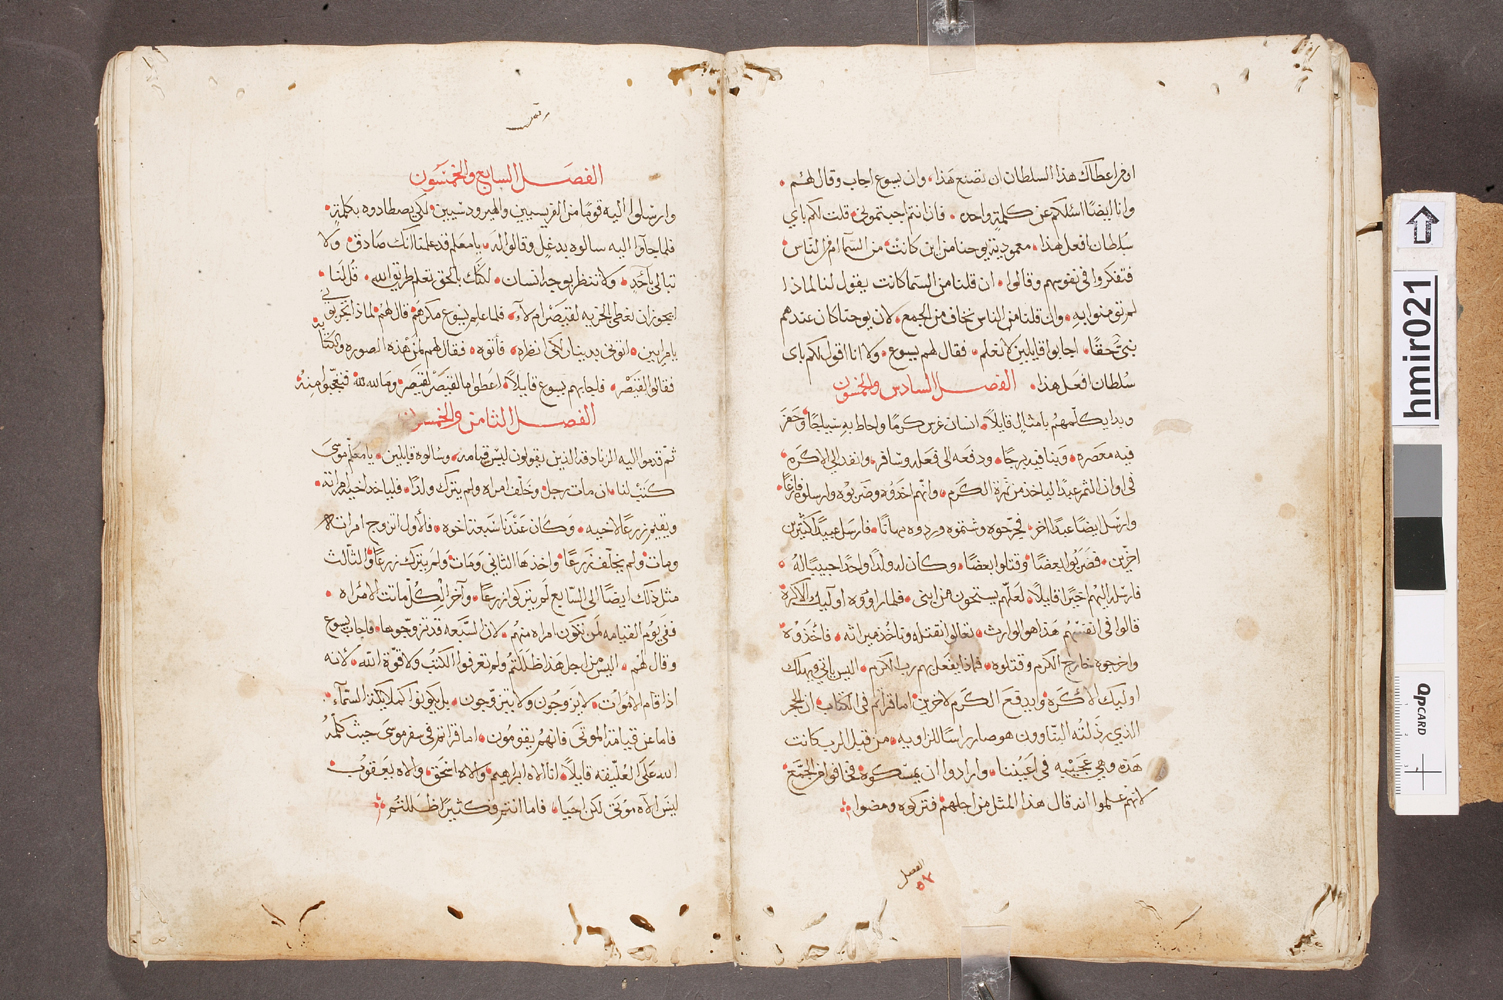 او من اعطاك هذا السلطان ان تصنع هذا وان يسوع اجاب وقال لهم
وانا ايضا اسئلكم عن كلمة واحده فان انتم اجبتموني قلت لكم باي
سلطان افعل هذا معمودية يوحنا من اين كانت من السما ام من الناس
فتفكروا في نفوسهم وقالوا ان قلنا من السما كانت يقول لنا لماذا
لم تومنوا به وان قلنا من الناس نخاف من الجمع لان يوحنا كان عندهم
نبي حقا اجابوا قايلين لا نعلم فقال لهم يسوع ولا انا اقول لكم باي
سلطان افعل هذا الفصل السادس والخمسون
وبدا يكلمهم بامثال قايلا انسان غرس كرما واحاط به سياجا وحفر
فيه معصره وبنا فيه برجا ودفعه الى فعله وسافر وانفد الى الاكره
في اوان الثمر عبدا لياخذ من ثمرة الكرم وانهم اخدوه وضربوه وارسلوه فارغا
وارسل ايضا عبدا اخر فجرحوه وشتموه وردوه مهانا فارسل عبيدا كثيرين
اخرين فضربوا بعضا وقتلوا بعضا وكان له ولدا واحدا حبيبا له
فارسله اليهم اخيرا قايلا لعلهم يستحون من ابني فلما راووه اوليك الاكرة
قالوا في انفسهم هذا هو الوارث تعالوا نقتله وناخذ ميراثه فاخذوه
واخرجوه خارج الكرم وقتلوه فماذا يفعل بهم رب الكرم اليس ياتي ويهلك
اوليك الاكرة ويدفع الكرم لاخرين اما قراتم في الكتاب ان الحجر
الذي رذلته البناوون هو صار راسا للزاويه من قبل الرب كانت
هذه وهي عجيبه في اعيننا وارادوا ان يمسكوه فخافوا من الجمع
لانهم علموا انه قال هذا المثل من اجلهم فتركوه ومضوا
الفصل
٥٧
الفصل السابع والخمسون
وارسلوا اليه قوما من الفريسيين والهيرودسيين لكي يصطادوه بكلمة
فلما جاوا اليه سالوه بدغل وقالوا له يا معلم قد علمنا انك صادق ولا
تبالي باحد ولا تنظر بوجه انسان لكنك بالحق تعلم طريق الله قل لنا
ايجوز ان نعطي الجزيه لقيصر ام لا فلما علم يسوع مكرهم قال لهم لماذا تجربوني
يا مرايين اتوني بدينار لكي انظره فاتوه فقال لهم لمن هذه الصوره والكتابه
فقالوا لقيصر فاجابهم يسوع قايلا اعطوا ما لقيصر لقيصر وما لله لله فتعجبوا منه
الفصل الثامن والخمسون
ثم قدموا اليه الزنادقه الذين يقولون ليس قيامه وسالوه قايلين يا معلم موسى
كتب لنا ان مات رجل وخلف امراه ولم يترك ولدا فلياخد اخيه امراته
ويقيم زرعا لاخيه وكان عندنا سبعة اخوه فالاول اتزوج امراة
ومات ولم يخلف زرعا واخذها الثاني ومات ولم يترك زرعا والثالث
مثل ذلك ايضا الى السابع لم يتركوا زرعا واخر الكل ماتت الامراه
ففي يوم القيامه لمن تكون امراه منهم لان السبعه قد تزوجوها فاجاب يسوع
وقال لهم اليس من اجل هذا ظللتم ولم تعرفوا الكتب ولا قوة الله لانه
اذا قام الاموات لا يزوجون ولا يتزوجون بل يكونوا كملايكة السماء
فاما عن قيامة الموتى فانهم يقومون اما قراتم في سفر موسى حيث كلمه
الله على العليقه قايلا انا اله ابراهيم واله اسحق واله يعقوب
ليس اله موتى لكن احيا فاما انتم فكثيرا ظللتم